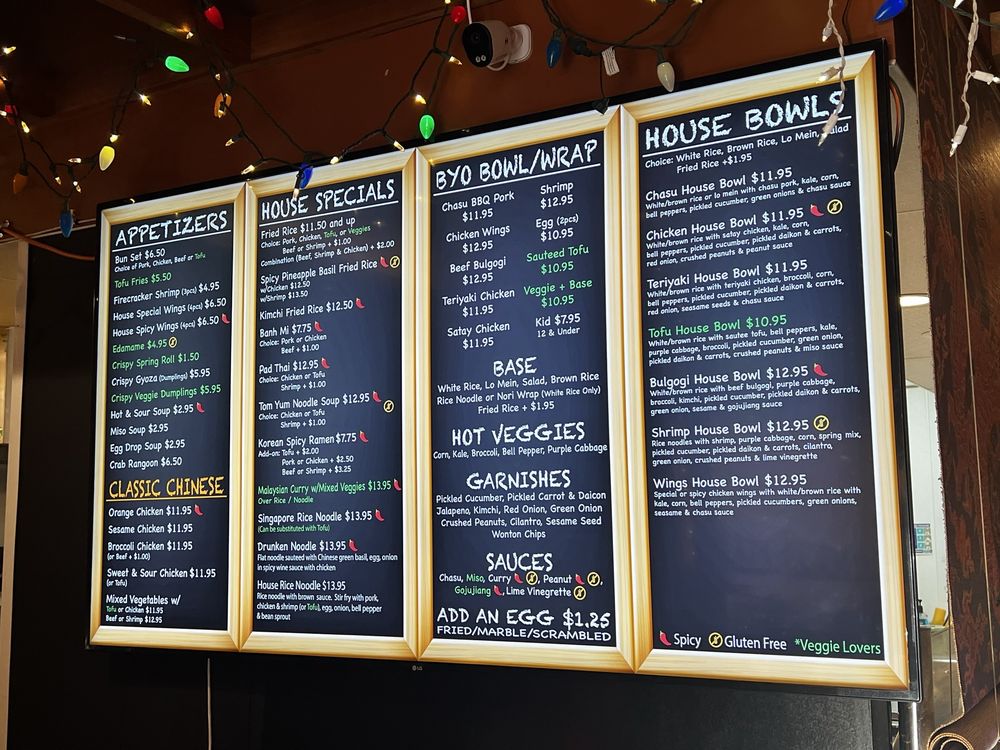 APPETIZERS
Bun Set $6.50
Choice of Pork, Chicken, Beef or Tofu
Tofu Fries $5.50
Firecracker Shrimp (3pcs) $4.95
House Special Wings (4pcs) $6.50
House Spicy Wings (4pcs) $6.50
Edamame $4.95
Crispy Spring Roll $1.50
Crispy Gyoza (Dumplings) $5.95
Crispy Veggie Dumplings $5.95
Hot & Sour Soup $2.95
Miso Soup $2.95
Egg Drop Soup $2.95
Crab Rangoon $6.50
CLASSIC CHINESE
Orange Chicken $11.95
Sesame Chicken $11.95
Broccoli Chicken $11.95
(or Beef + $1.00)
Sweet & Sour Chicken $11.95
(or Tofu)
Mixed Vegetables w/
Tofu or Chicken $11.95
Beef or Shrimp $12.95
HOUSE SPECIALS
Fried Rice $11.50 and up
Choice: Pork, Chicken, Tofu, or Veggies
Beef or Shrimp + $1.00
Combination (Beef, Shrimp & Chicken) + $2.00
Spicy Pineapple Basil Fried Rice
w/Chicken $12.50
w/Shrimp $13.50
Kimchi Fried Rice $12.50
Banh Mi $7.75
Choice: Pork or Chicken
Beef + $1.00
Pad Thai $12.95
Choice: Chicken or Tofu
Shrimp + $1.00
Tom Yum Noodle Soup $12.95
Choice: Chicken or Tofu
Shrimp + $1.00
Korean Spicy Ramen $7.75
Add-on: Tofu + $2.00
Pork or Chicken + $2.50
Beef or Shrimp + $3.25
Malaysian Curry w/Mixed Veggies $13.95
Over Rice / Noodle
Singapore Rice Noodle $13.95
(Can be substituted with Tofu)
Drunken Noodle $13.95
Flat noodle sauteed with Chinese green basil, egg, onion
in spicy wine sauce with chicken
House Rice Noodle $13.95
Rice noodle with brown sauce. Stir fry with pork,
chicken & shrimp (or Tofu), egg, onion, bell pepper
& bean sprout
BYO BOWL/WRAP
Chasu BBQ Pork
$11.95
Chicken Wings
$12.95
Beef Bulgogi
$12.95
Teriyaki Chicken
$11.95
Satay Chicken
$11.95
Shrimp
$12.95
Egg (2pcs)
$10.95
Sauteed Tofu
$10.95
Veggie + Base
$10.95
Kid $7.95
12 & Under
BASE
White Rice, Lo Mein, Salad, Brown Rice
Rice Noodle or Nori Wrap (White Rice Only)
Fried Rice + $1.95
HOT VEGGIES
Corn, Kale, Broccoli, Bell Pepper, Purple Cabbage
GARNISHES
Pickled Cucumber, Pickled Carrot & Daicon
Jalapeno, Kimchi, Red Onion, Green Onion
Crushed Peanuts, Cilantro, Sesame Seed
Wonton Chips
SAUCES
Chasu, Miso, Curry, Peanut,
Gojujiang, Lime Vinegrette
ADD AN EGG $1.25
FRIED/MARBLE/SCRAMBLED
HOUSE BOWLS
Choice: White Rice, Brown Rice, Lo Mein, Salad
Fried Rice +$1.95
Chasu House Bowl $11.95
White/brown rice or lo mein with chasu pork, kale, corn,
bell peppers, pickled cucumber, green onions & chasu sauce
Chicken House Bowl $11.95
White/brown rice with satay chicken, kale, corn,
bell peppers, pickled cucumber, pickled daikon & carrots,
red onion, crushed peanuts & peanut sauce
Teriyaki House Bowl $11.95
White/brown rice with teriyaki chicken, broccoli, corn,
bell peppers, pickled cucumber, pickled daikon & carrots,
red onion, seasame seeds & chasu sauce
Tofu House Bowl $10.95
White/brown rice with sautee tofu, bell peppers, kale,
purple cabbage, broccoli, pickled cucumber, green onion,
pickled daikon & carrots, crushed peanuts & miso sauce
Bulgogi House Bowl $12.95
White/brown rice with beef bulgogi, purple cabbage,
broccoli, kimchi, pickled cucumber, pickled daikon & carrots,
green onion, sesame & gojujiang sauce
Shrimp House Bowl $12.95
Rice noodles with shrimp, purple cabbage, corn, spring mix,
pickled cucumber, pickled daikon & carrots, cilantro,
green onion, crushed peanuts & lime vinegrette
Wings House Bowl $12.95
Special or spicy chicken wings with white/brown rice with
kale, corn, bell peppers, pickled cucumbers, green onions,
seasame & chasu sauce
Spicy Gluten Free *Veggie Lovers
LG